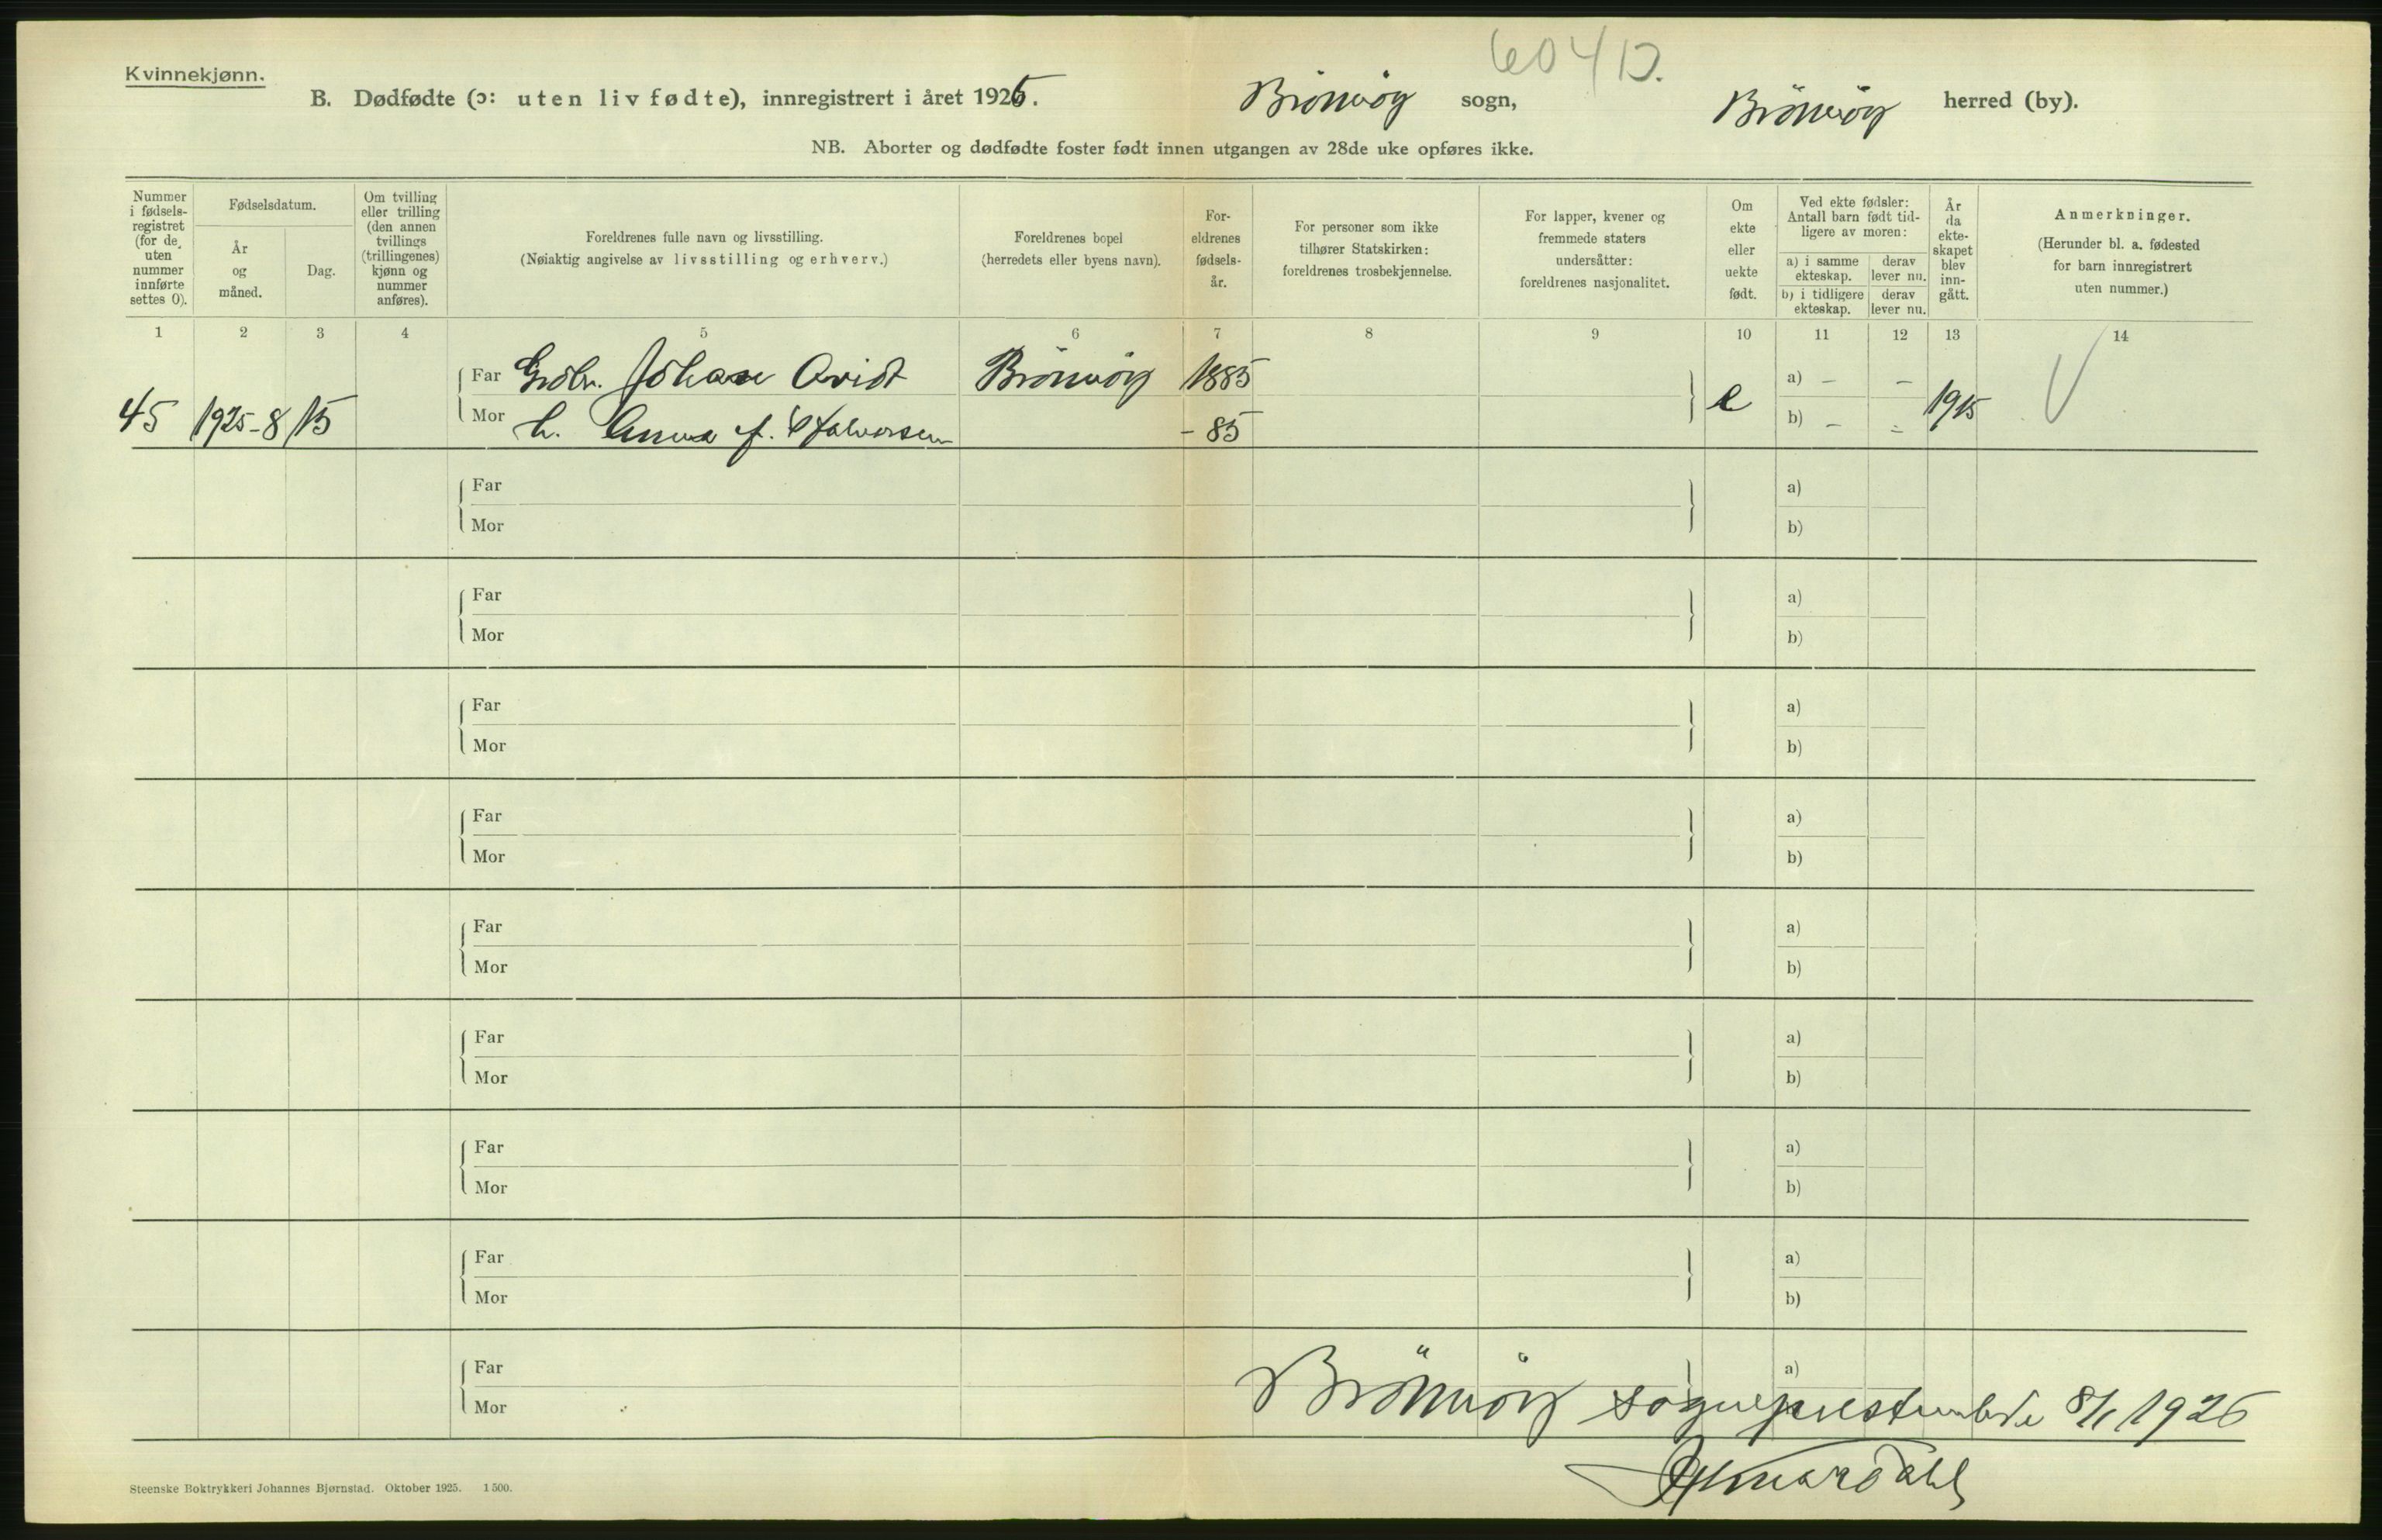 Kvinnekjønn.
604 D.
B. Dødfødte (ɔ: uten liv fødte), innregistrert i året 1925. Brönnöy sogn, Brönnöy herred (by).
NB. Aborter og dødfødte foster født innen utgangen av 28de uke opføres ikke.
Nummer i fødsels-registret (for de uten nummer innførte settes 0).
Fødselsdatum.
År og måned.
Dag.
Om tvilling eller trilling (den annen tvillings (trillingenes) kjønn og nummer anføres).
Foreldrenes fulle navn og livsstilling.
(Nøiaktig angivelse av livsstilling og erhverv.)
Foreldrenes bopel
(herredets eller byens navn).
For-eldrenes fødsels-år.
For personer som ikke tilhører Statskirken: foreldrenes trosbekjennelse.
For lapper, kvener og fremmede staters undersåtter: foreldrenes nasjonalitet.
Om ekte eller uekte født.
Ved ekte fødsler: Antall barn født tid-ligere av moren:
a) i samme ekteskap.
derav lever nu.
b) i tidligere ekteskap.
derav lever nu.
År da ekte-skapet blev inn-gått.
Anmerkninger.
(Herunder bl. a. fødested for barn innregistrert uten nummer.)
1 2 3 4 5 6 7 8 9 10 11 12 13 14
Far Grdbr. Johan Ovidt Brönnöy 1885 a) – –
45 1925-8 15 Mor h. Anna f. Halvorsen - 85 e b) – – 1915
Far a)
Mor b)
Far a)
Mor b)
Far a)
Mor b)
Far a)
Mor b)
Far a)
Mor b)
Far a)
Mor b)
Far a)
Mor b)
Far a)
Mor b)
Far a)
Mor Brönnöy sogneprestembede 8/1 1926
Steenske Boktrykkeri Johannes Bjørnstad. Oktober 1925. 1500.